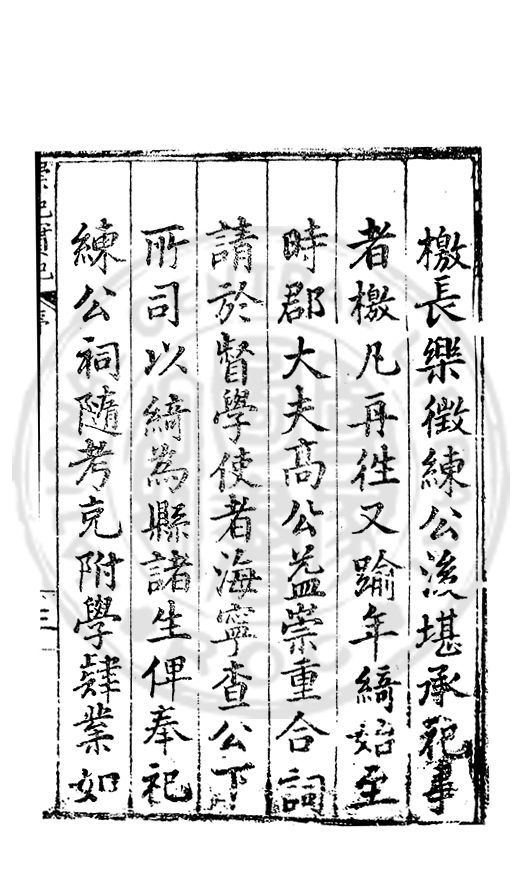 檄長樂徵練公流堪承祀事
者檄凡再徃又踰年綺始至
時郡大夫高公益崇重合詞
請於督學使者海寧查公下
所司以綺為縣諸生俾奉祀
練公祠隨考充附學肄業如
崇祀實紀
序
三